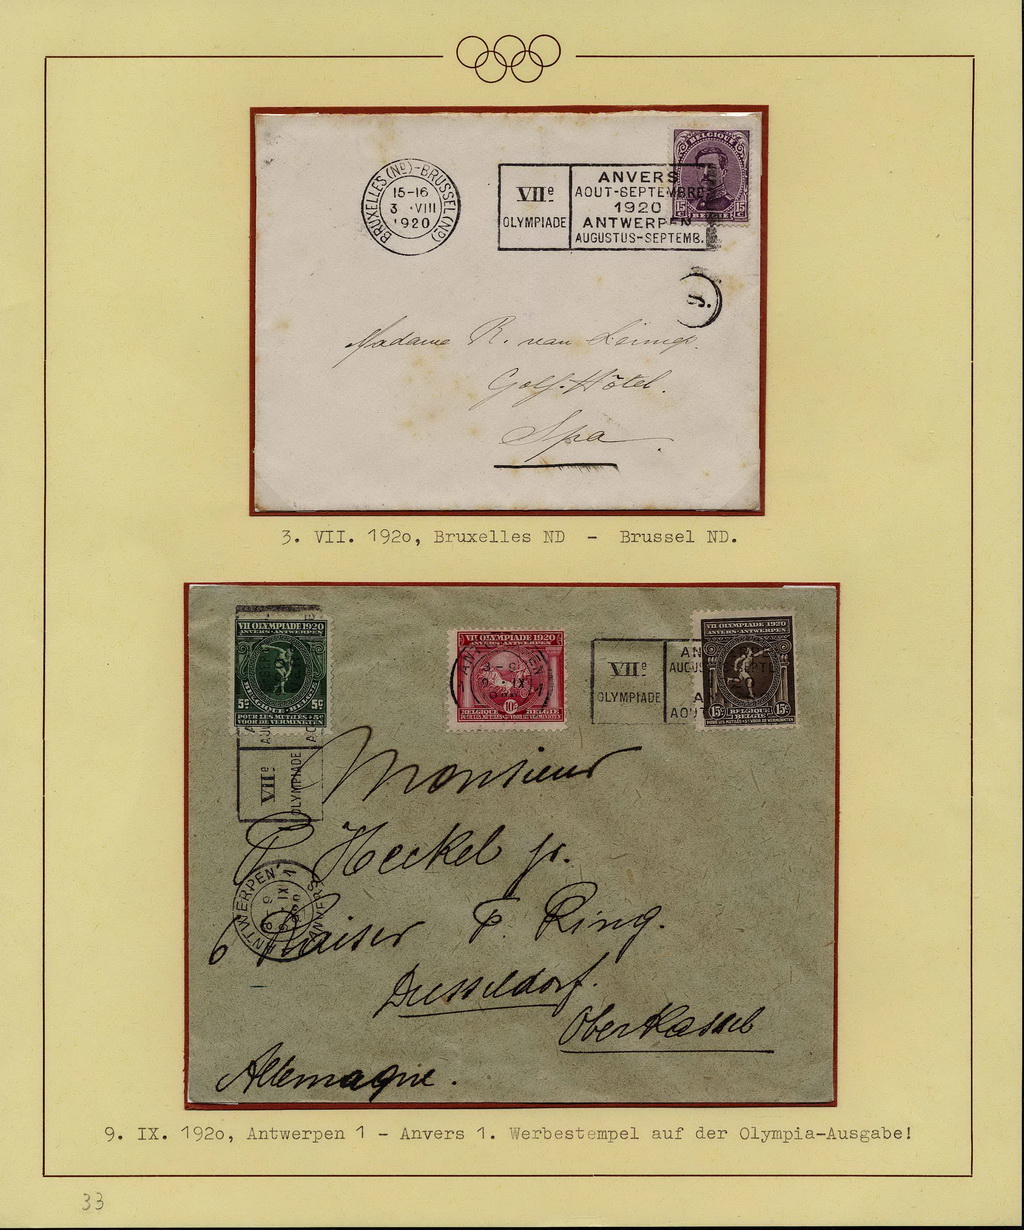 BRUXELLES (ND)-BRUSSEL (ND)
15-16
3 ·VIII
1920
VIIe
OLYMPIADE
ANVERS
AOUT-SEPTEMBRE
1920
ANTWERPEN
AUGUSTUS-SEPTEMB.
BELGIQUE
15 c 15 c
BELGIE
9.
Madame R. van
Golf-Hôtel.
Spa
3. VII. 192o, Bruxelles ND - Brussel ND.
VII OLYMPIADE 1920
ANVERS-ANTWERPEN
5c 5c
BELGIQUE-BELGIE
POUR LES MUTILÉS+5c
VOOR DE VERMINKTEN
VII OLYMPIADE 1920
ANVERS-ANTWERPEN
10c
BELGIQUE BELGIE
POUR LES MUTILÉS+5c VOOR DE VERMINKTEN
VIIe
OLYMPIADE
VII OLYMPIADE 1920
ANVERS-ANTWERPEN
15c BELGIQUE 15c
BELGIË
POUR LES MUTILÉS+5c VOOR DE VERMINKTEN
VIIe
OLYMPIADE
ANTWERPEN 1
ANVERS
Monsieur
P. Heckel jr.
6 Kaiser F. Ring.
Duesseldorf.
Oberkassel
Allemagne.
9. IX. 192o, Antwerpen 1 - Anvers 1. Werbestempel auf der Olympia-Ausgabe!
33